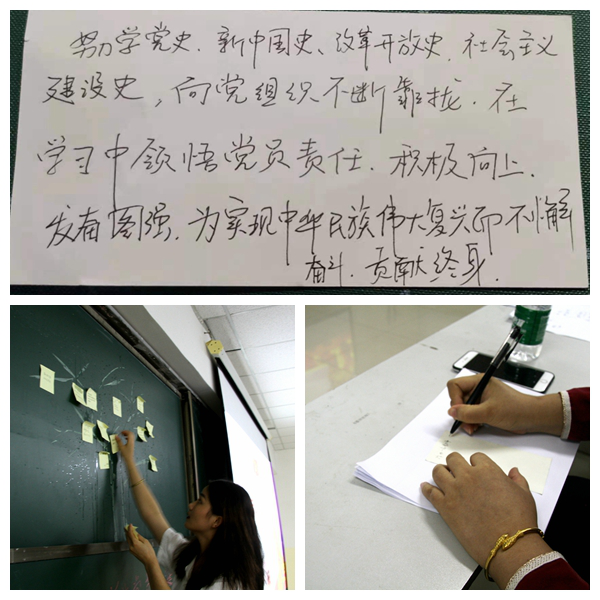 努力学党史、新中国史、改革开放史、社会主义
建设史，向党组织不断靠拢．在
学习中领悟党员责任．积极向上．
发奋图强．为实现中华民族伟大复兴而不懈
奋斗．贡献终身．